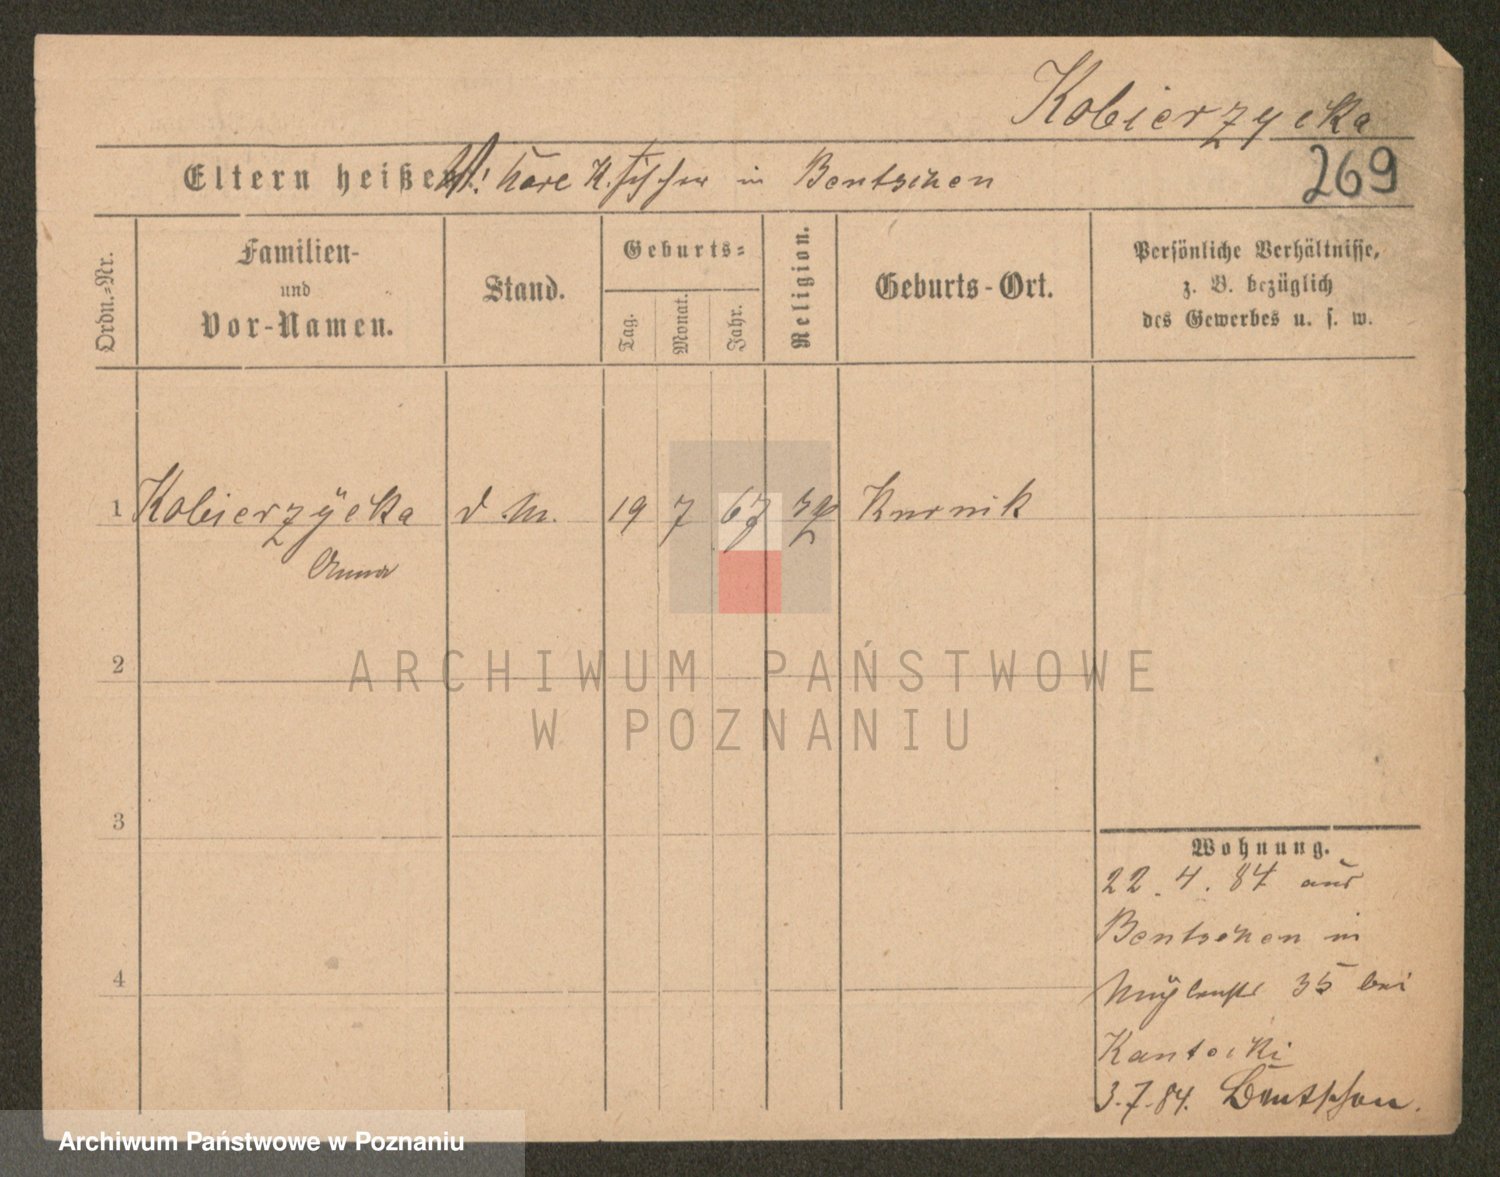 Kobierzycka
269
Eltern heißen: in Bentschen
Ordn.-Nr.
Familien-
und
Vor-Namen.
Stand.
Geburts-
Tag.
Monat.
Jahr.
Religion.
Geburts-Ort.
Persönliche Verhältnisse,
z. B. bezüglich
des Gewerbes u. s. w.
1 Kobierzÿcka d. M. 19 7 67 Kurnik
Anna
2
3
4
Wohnung.
22. 4. 84 aus
Bentschen in
35 bei
Kantecki
3. 7. 84. Bentschen.
ARCHIWUM PAŃSTWOWE
W POZNANIU
Archiwum Państwowe w Poznaniu